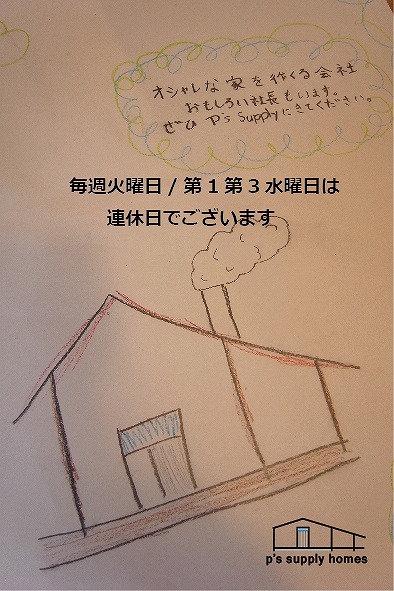 オシャレな家を作くる会社
おもしろい社長もいます。
ぜひ P's Supplyにきてください。
毎週火曜日/第1第3水曜日は
連休日でございます
p's supply homes